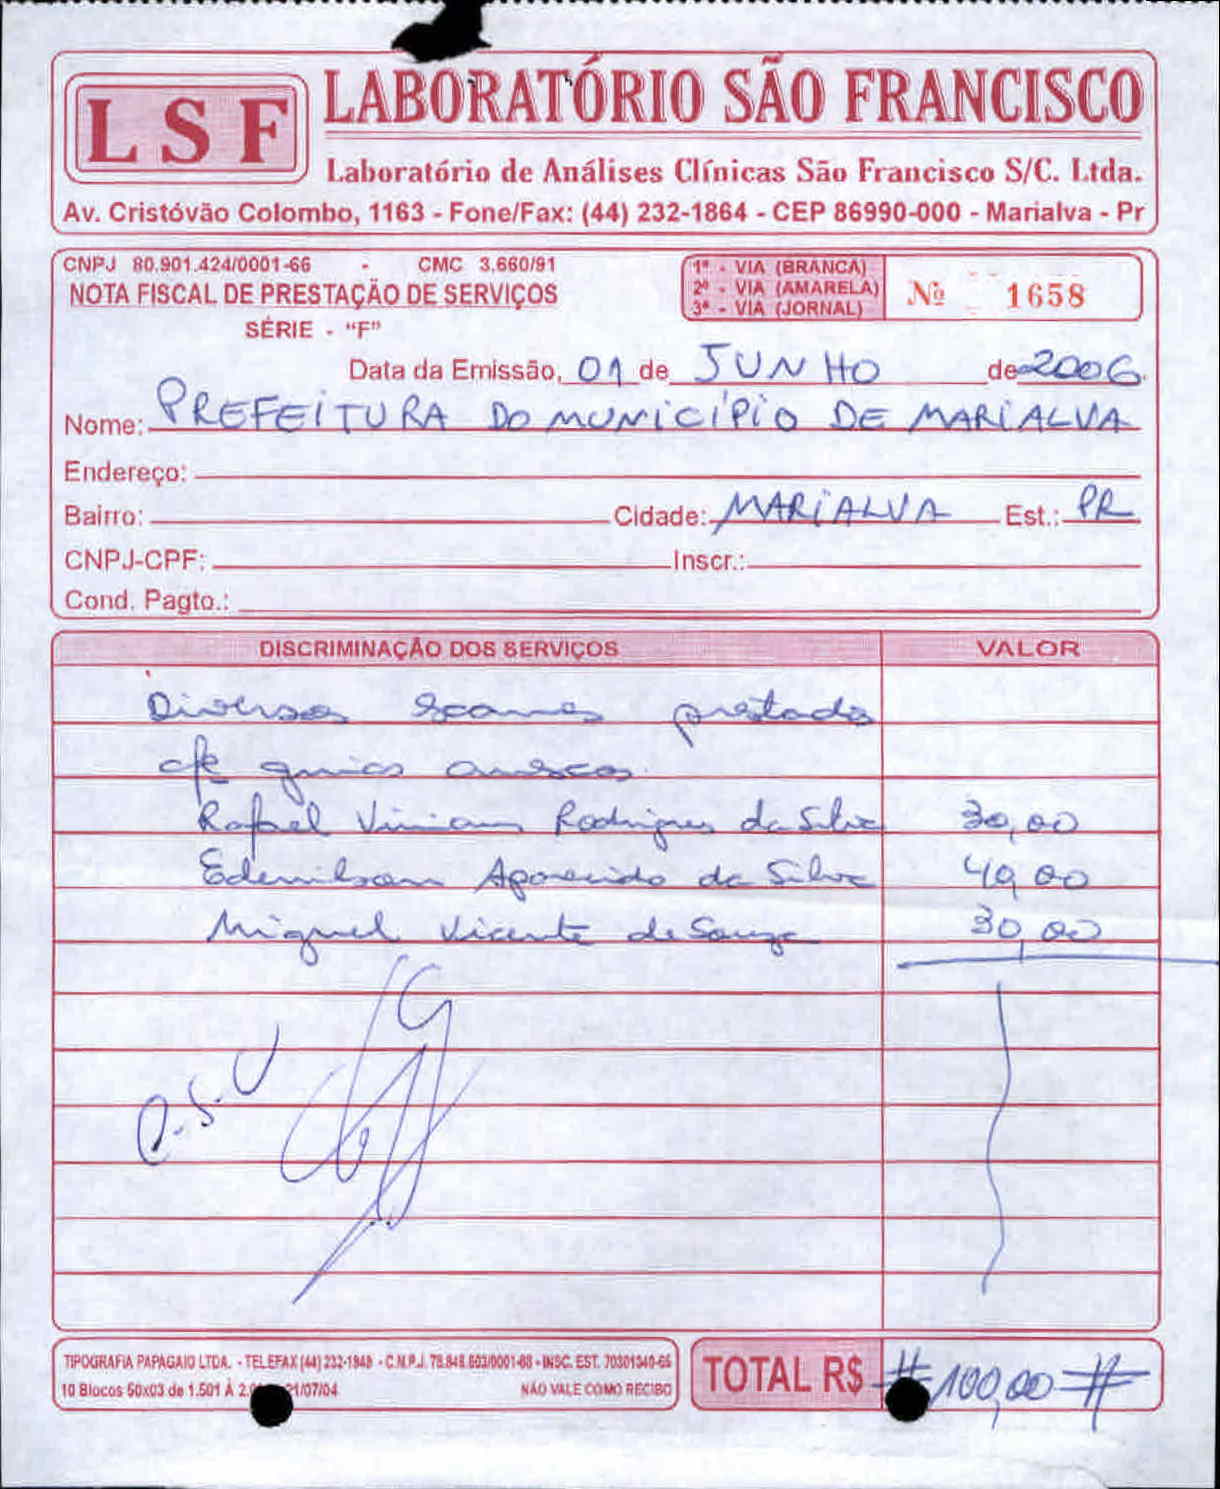 LSF
LABORATÓRIO SÃO FRANCISCO
Laboratório de Análises Clínicas São Francisco S/C. Ltda.
Av. Cristóvão Colombo, 1163 - Fone/Fax: (44) 232-1864 - CEP 86990-000 - Marialva - Pr
CNPJ 80.901.424/0001-66 - CMC 3.660/91
NOTA FISCAL DE PRESTAÇÃO DE SERVIÇOS
SÉRIE - "F"
1ª - VIA (BRANCA)
2ª - VIA (AMARELA)
3ª - VIA (JORNAL)
Nº 1658
Data da Emissão, 01 de JUNHO de 2006
Nome: PREFEITURA DO MUNICÍPIO DE MARIALVA
Endereço:
Bairro: Cidade: MARIALVA Est.: PR
CNPJ-CPF: Inscr.:
Cond. Pagto.:
DISCRIMINAÇÃO DOS SERVIÇOS VALOR
Diversos exames prestados
cfe guias anexas.
Rafael Rodrigues da Silva 30,00
Edenilson Aparecido da Silva 40,00
Miguel Vicente de Souza 30,00
TIPOGRAFIA PAPAGAIO LTDA. - TELEFAX (44) 232-1848 - C.N.P.J. 78.848.603/0001-68 - INSC. EST. 70301340-65
10 Blocos 50x03 de 1.501 À 2. /07/04 NÃO VALE COMO RECIBO
TOTAL R$ # 100,00 #